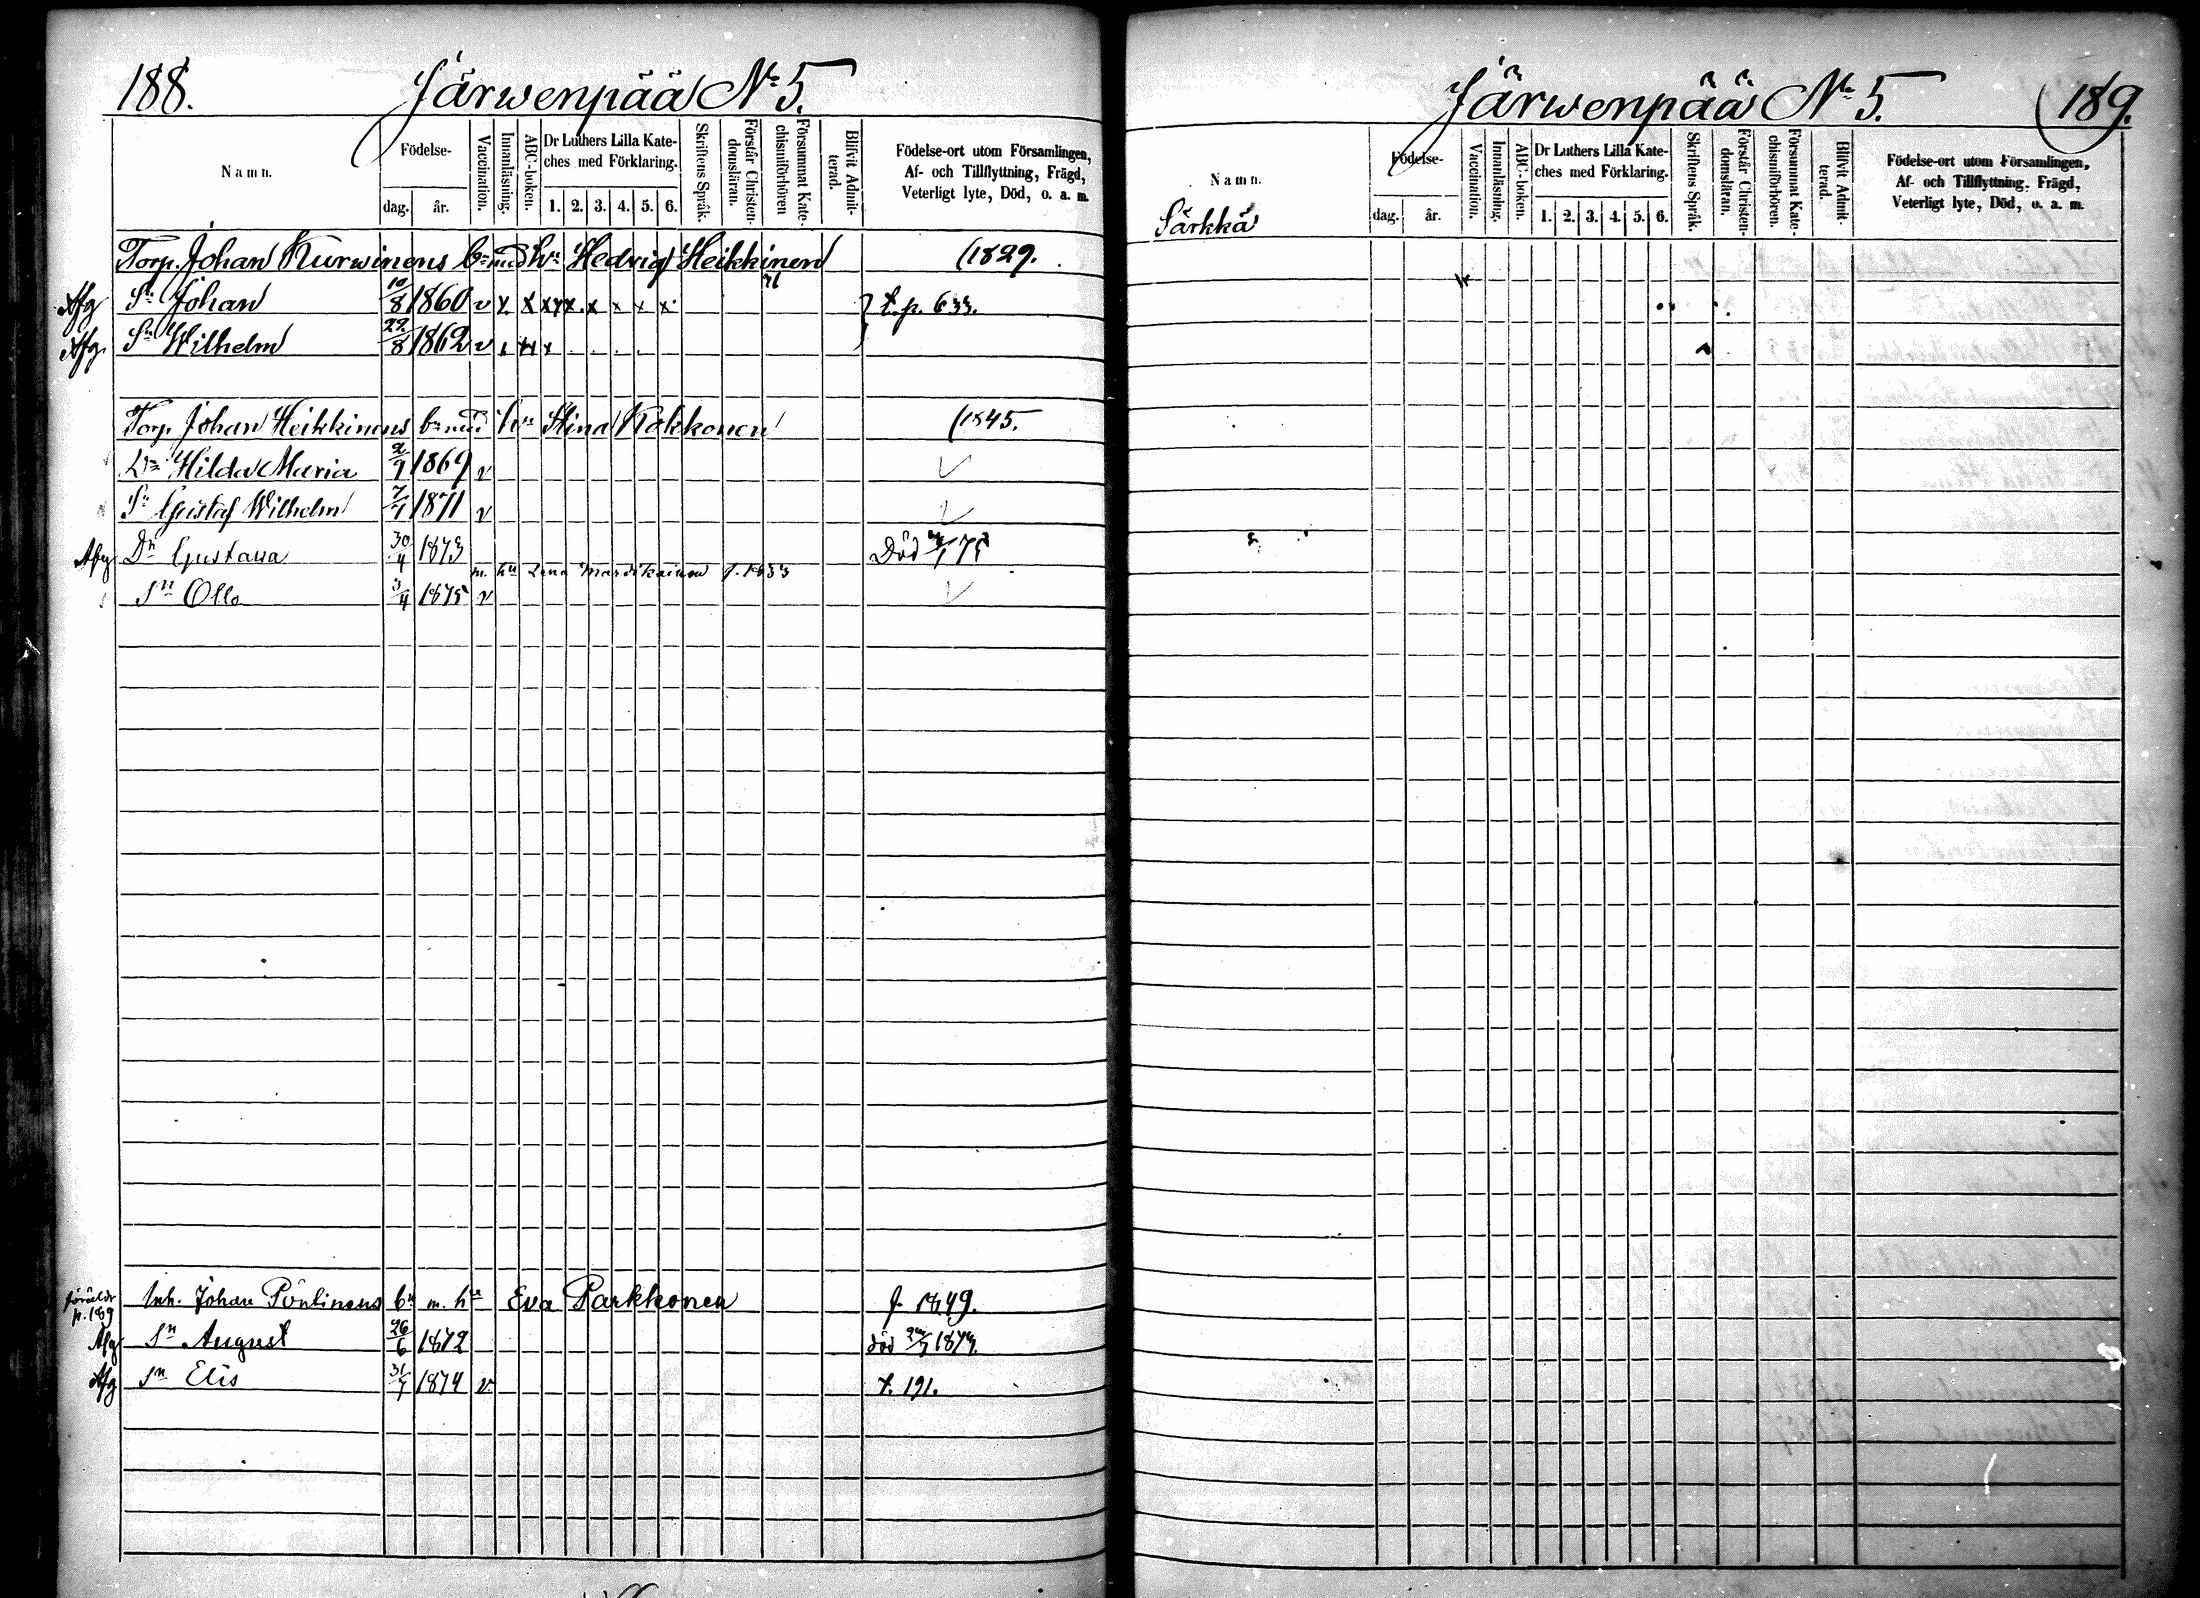 188.
Järwenpää No 5.
Namn.
Födelse-
dag.
år.
Vaccination.
Innanläsning.
ABC-boken.
Dr Luthers Lilla Kate-
ches med Förklaring.
1. 2. 3. 4. 5. 6.
Skriftens Språk.
Förstår Christen-
domsläran.
Försummat Kate-
chismiförhören
Blifvit Admit-
terad.
Födelse-ort utom Församlingen,
Af- och Tillflyttning, Frägd,
Veterligt lyte, Död, o. a. m.
Torp. Johan Kurwinens bn med hu Hedvig Heikkinen (1829.
Afg Sn Johan 10/8 1860 v x x x x x x x x x 71 t. p. 633.
Afg. Sn Wilhelm 29/8 1862 v
Torp. Johan Heikkinens bn med hu Stina Kokkonen (1845.
Dr Hilda Maria 2/9 1869 v
Sn Gustaf Wilhelm 7/7 1871 v
Afg Dr Gustava 30/4 1873 Död
m. hu Lena f. 1833
Sn Olle 3/4 1875 v
föräldr p. 189
Inh. Johan Pöntinens bn m. hu Eva Parkkonen f. 1849.
Afg Sn August 26/6 1872 död
Afg Sn Elis 31/7 1874 v t. 191.
Järwenpää No 5.
189.
Namn.
Särkkä
Födelse-
dag.
år.
Vaccination.
Innanläsning.
ABC-boken.
Dr Luthers Lilla Kate-
ches med Förklaring.
1. 2. 3. 4. 5. 6.
Skriftens Språk.
Förstår Christen-
domsläran.
Försummat Kate-
chismiförhören.
Blifvit Admit-
terad.
Födelse-ort utom Församlingen,
Af- och Tillflyttning, Frägd,
Veterligt lyte, Död, o. a. m.